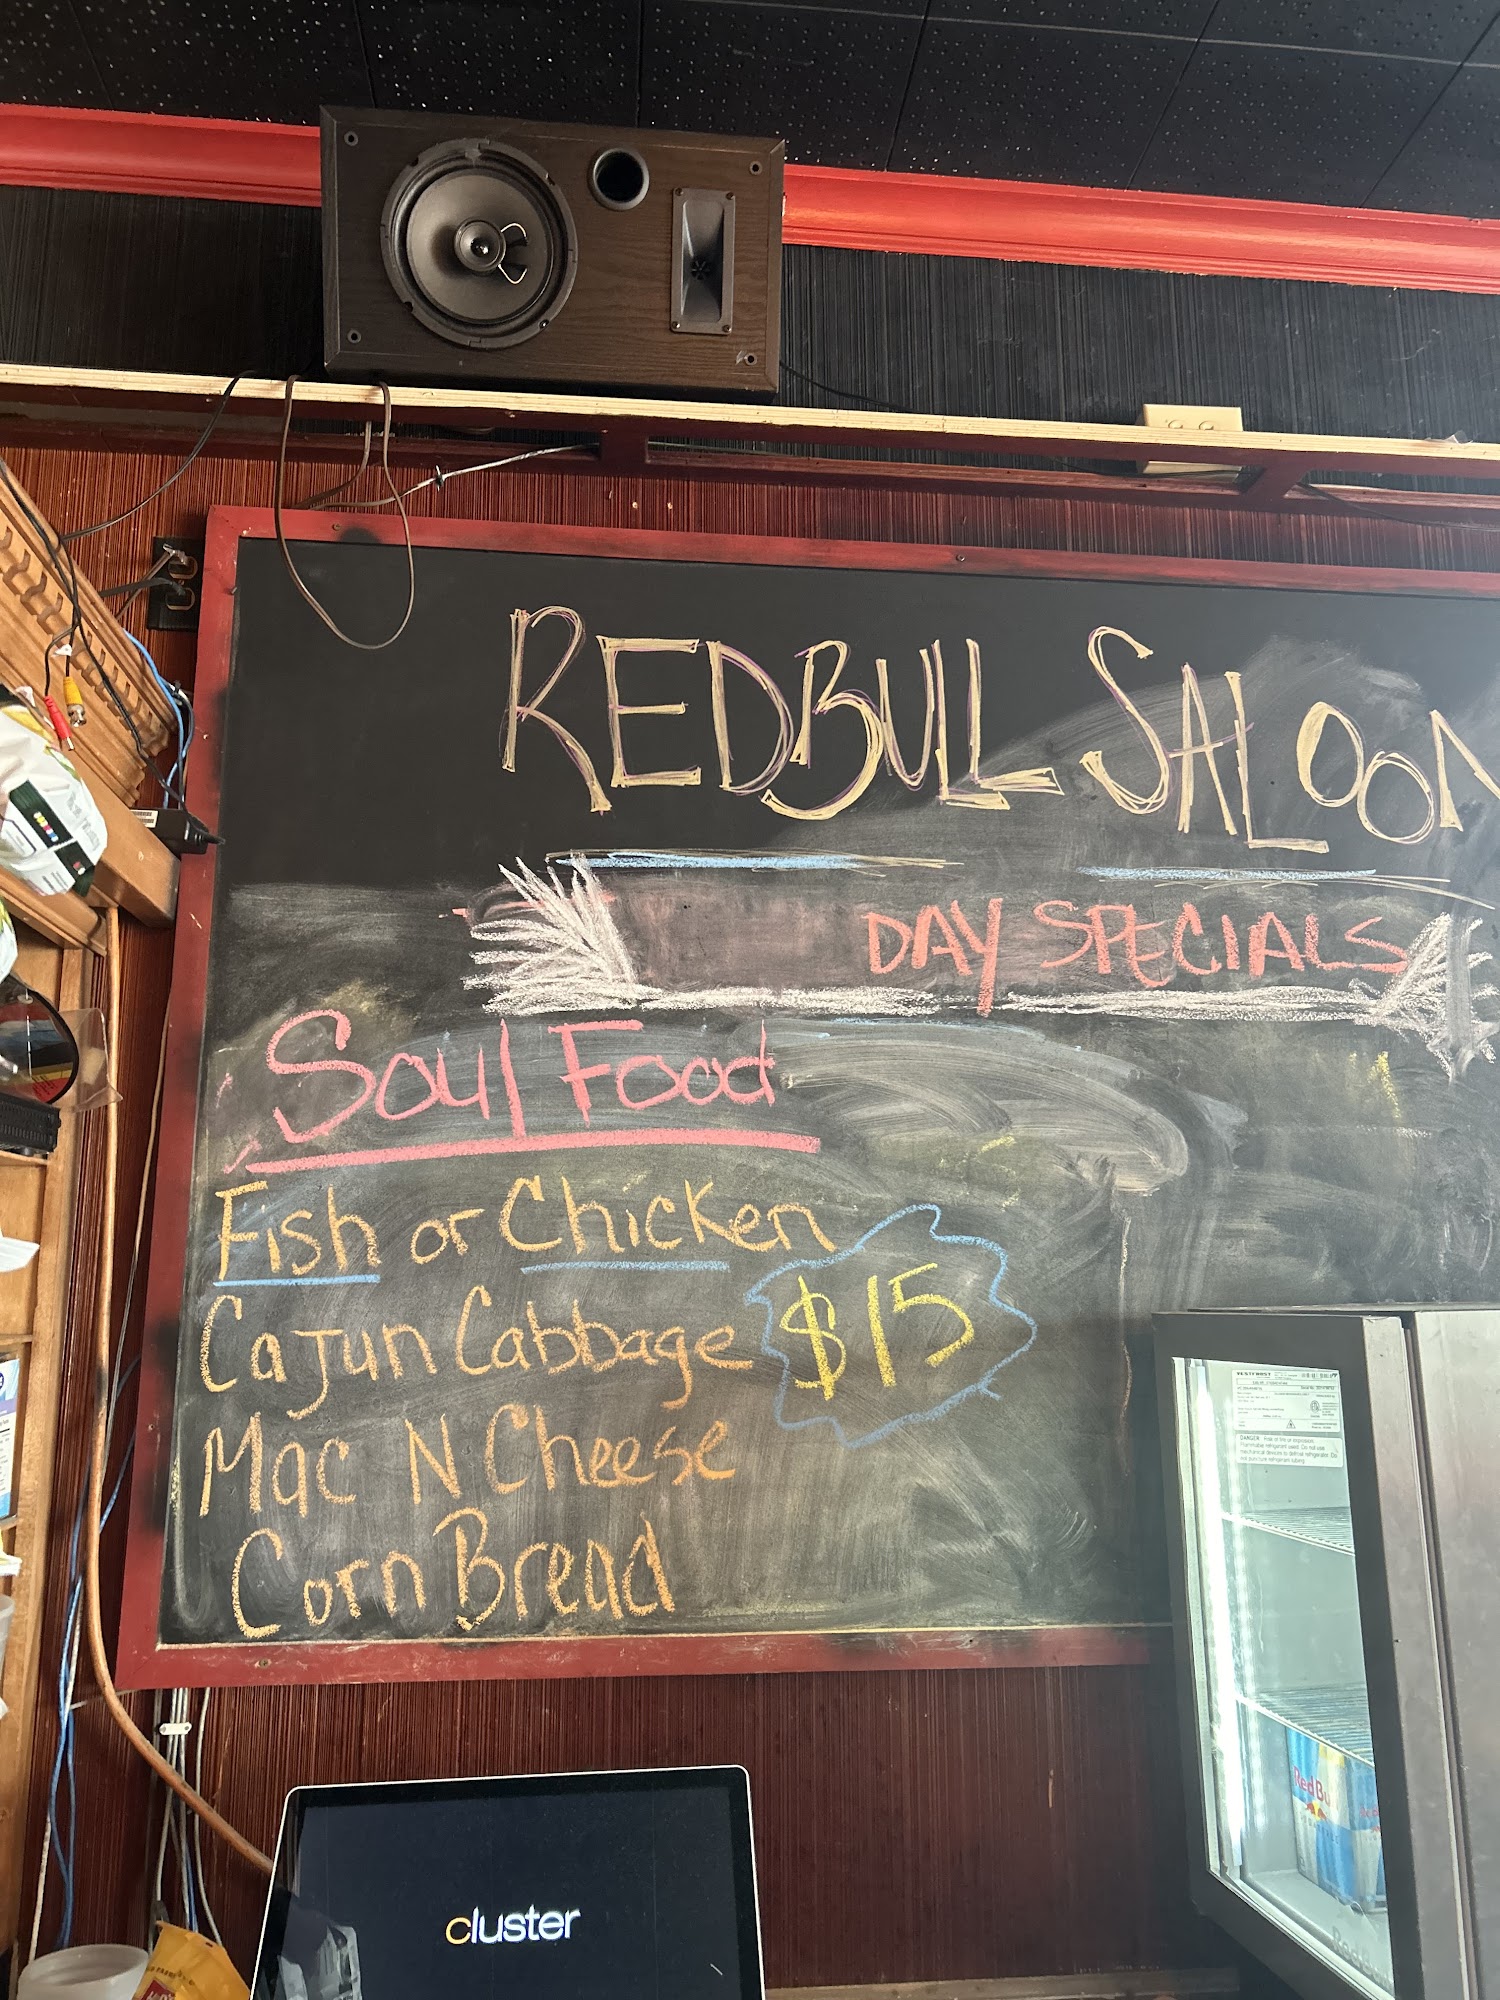 REDBULL SALOON
DAY SPECIALS
Soul Food
Fish or Chicken
Cajun Cabbage
$15
Mac N Cheese
Corn Bread
VESTFROST
DANGER
RedBu
cluster